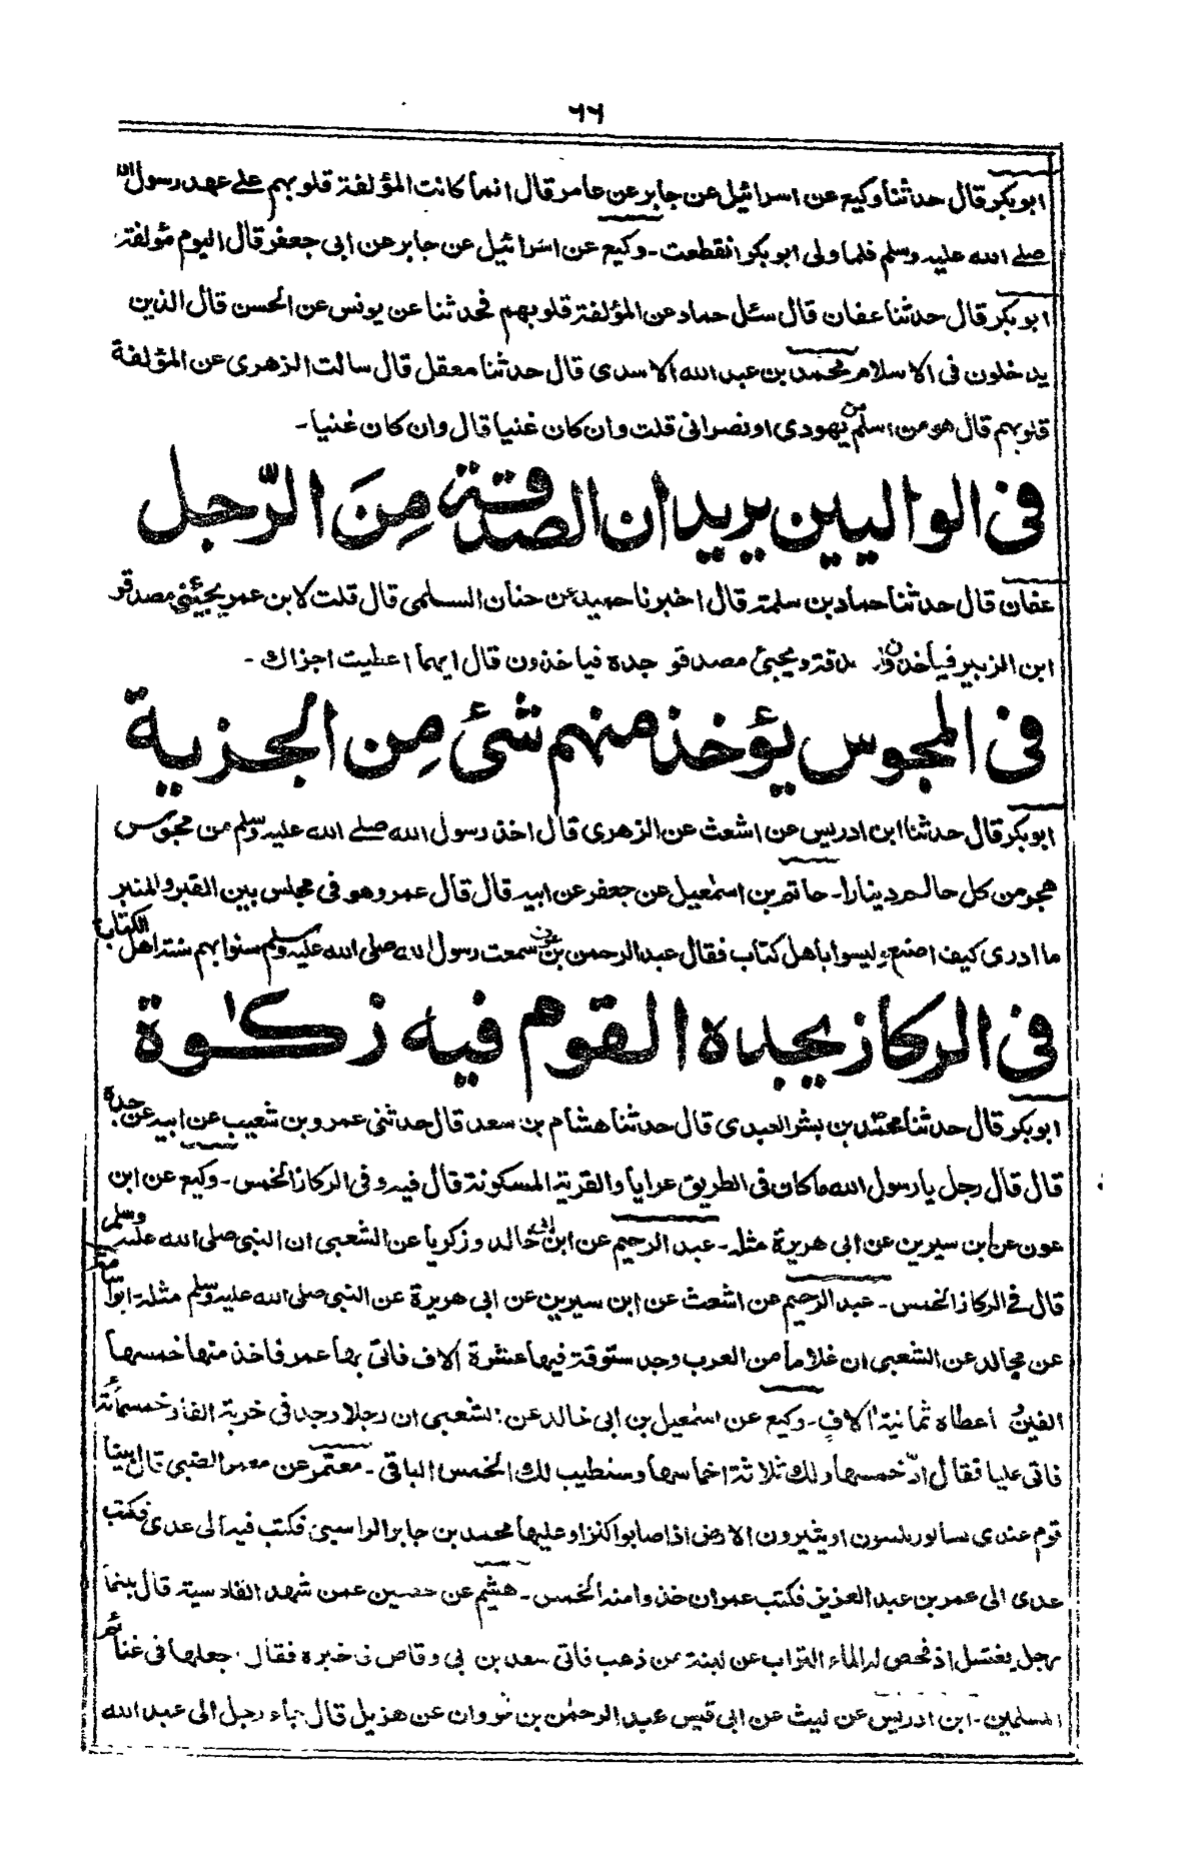 ٦٦
ابوبكر قال حدثنا وكيع عن اسرائيل عن جابر عن عامر قال انما كانت المؤلفة قلوبهم على عهد رسول الله
صلى الله عليه وسلم فلما ولى ابوبكر انقطعت - وكيع عن اسرائيل عن جابر عن ابى جعفر قال اليوم مؤلفة
ابوبكر قال حدثنا عفان قال سئل حماد عن المؤلفة قلوبهم فحدثنا عن يونس عن الحسن قال الذين
يدخلون فى الاسلام محمد بن عبد الله الاسدى قال حدثنا معقل قال سالت الزهرى عن المؤلفة
قلوبهم قال هو من اسلم من يهودى او نصرانى قلت وان كان غنيا قال وان كان غنيا -
فى الواليين يريدان الصدقة مِنَ الرّجل
عفان قال حدثنا حماد بن سلمة قال اخبرنا حميد عن حنان السلمى قال قلت لابن عمر يجيئنى مصدقو
ابن الزبير فياخذون دقة ويجيئ مصدقو جدة فياخذون قال ايهما اعطيت اجزاك -
فى المجوس يؤخذ منهم شئ مِن الجزية
ابوبكر قال حدثنا ابن ادريس عن اشعث عن الزهرى قال اخذ رسول الله صلى الله عليه وسلم من مجوس
هجر من كل حالم دينارا - حاتم بن اسمعيل عن جعفر عن ابيه قال قال عمر وهو فى مجلس بين القبر والمنبر
ما ادرى كيف اصنع وليسوا باهل كتاب فقال عبد الرحمن بن عوف سمعت رسول الله صلى الله عليه وسلم سنوا بهم سنة اهل الكتاب
فى الركاز يجده القوم فيه زكوٰة
ابوبكر قال حدثنا محمد بن بشر العبدى قال حدثنا هشام بن سعد قال حدثنى عمرو بن شعيب عن ابيه عن جدة
قال قال رجل يا رسول الله ما كان فى الطريق عرايا والقرية المسكونة قال فيه وفى الركاز الخمس - وكيع عن ابن
عون عن ابن سيرين عن ابى هريرة مثله - عبد الرحيم عن ابن ابى خالد وزكريا عن الشعبى ان النبى صلى الله عليه وسلم
قال فى الركاز الخمس - عبد الرحيم عن اشعث عن ابن سيرين عن ابى هريرة عن النبى صلى الله عليه وسلم مثله - ابو اسامة
عن مجالد عن الشعبى ان غلاما من العرب وجد ستوقة فيها عشرة الاف فاتى بها عمر فاخذ منها خمسها
الفين اعطاه ثمانية الاف - وكيع عن اسمعيل بن ابى خالد عن الشعبى ان رجلا وجد فى خربة الفا وخمسمائة
فاتى عليا فقال ادّ خمسها ولك ثلاثة اخماسها وسنطيب لك الخمس الباقى - معتمر عن معمر الضبى قال بينا
قوم عندى سابور يلسون او يثيرون الارض اذا صابوا كنزا وعليها محمد بن جابر الراسبى فكتب فيه الى عدى فكتب
عدى الى عمر بن عبد العزيز فكتب عمر ان خذوا منه الخمس - هشيم عن حصين عمن شهد القادسية قال بينما
رجل يغتسل اذ فحص له الماء التراب عن لبنة من ذهب فاتى سعد بن بى وقاص فاخبره فقال اجعلها فى غنائم
المسلمين - ابن ادريس عن ليث عن ابى قيس عبد الرحمن بن ثروان عن هزيل قال جاء رجل الى عبد الله